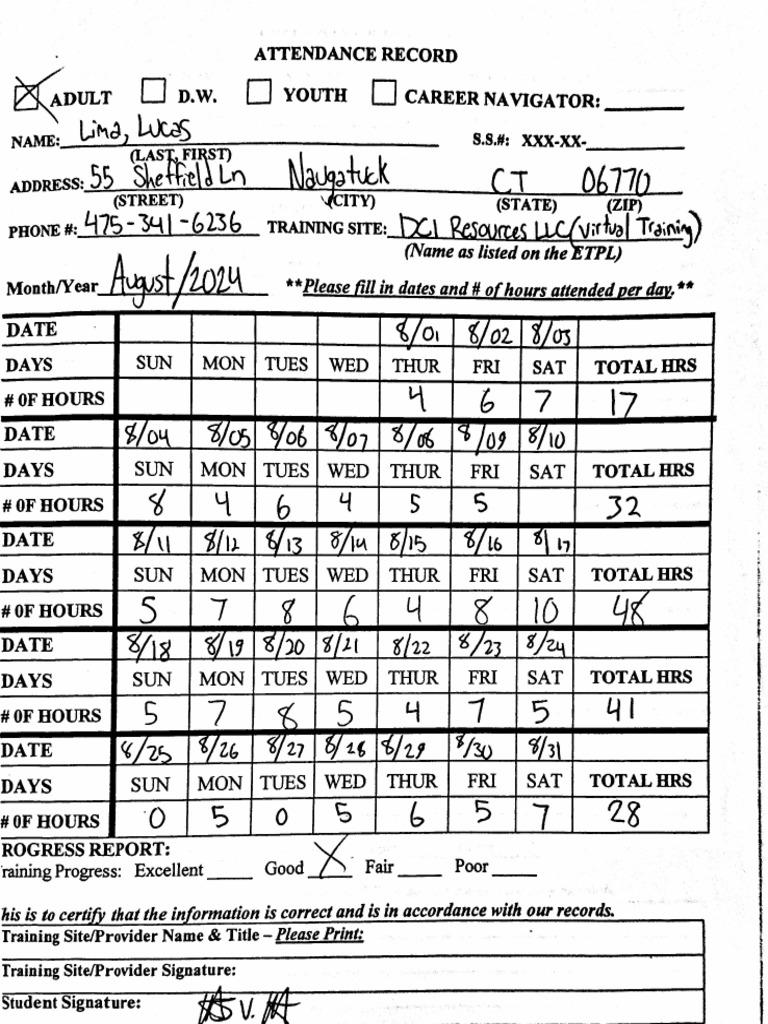 ATTENDANCE RECORD
ADULT D.W. YOUTH CAREER NAVIGATOR:
NAME: Lima, Lucas S.S.#: XXX-XX-
(LAST, FIRST)
ADDRESS: 55 Sheffield Ln Naugatuck CT 06770
(STREET) (CITY) (STATE) (ZIP)
PHONE #: 475-341-6236 TRAINING SITE: DCI Resources LLC (Virtual Training)
(Name as listed on the ETPL)
Month/Year August/2024 **Please fill in dates and # of hours attended per day.**
DATE 8/01 8/02 8/03
DAYS SUN MON TUES WED THUR FRI SAT TOTAL HRS
# 0F HOURS 4 6 7 17
DATE 8/04 8/05 8/06 8/07 8/08 8/09 8/10
DAYS SUN MON TUES WED THUR FRI SAT TOTAL HRS
# 0F HOURS 8 4 6 4 5 5 32
DATE 8/11 8/12 8/13 8/14 8/15 8/16 8/17
DAYS SUN MON TUES WED THUR FRI SAT TOTAL HRS
# 0F HOURS 5 7 8 6 4 8 10 48
DATE 8/18 8/19 8/20 8/21 8/22 8/23 8/24
DAYS SUN MON TUES WED THUR FRI SAT TOTAL HRS
# 0F HOURS 5 7 8 5 4 7 5 41
DATE 8/25 8/26 8/27 8/28 8/29 8/30 8/31
DAYS SUN MON TUES WED THUR FRI SAT TOTAL HRS
# 0F HOURS 0 5 0 5 6 5 7 28
ROGRESS REPORT:
raining Progress: Excellent Good X Fair Poor
his is to certify that the information is correct and is in accordance with our records.
Training Site/Provider Name & Title – Please Print:
Training Site/Provider Signature:
Student Signature: